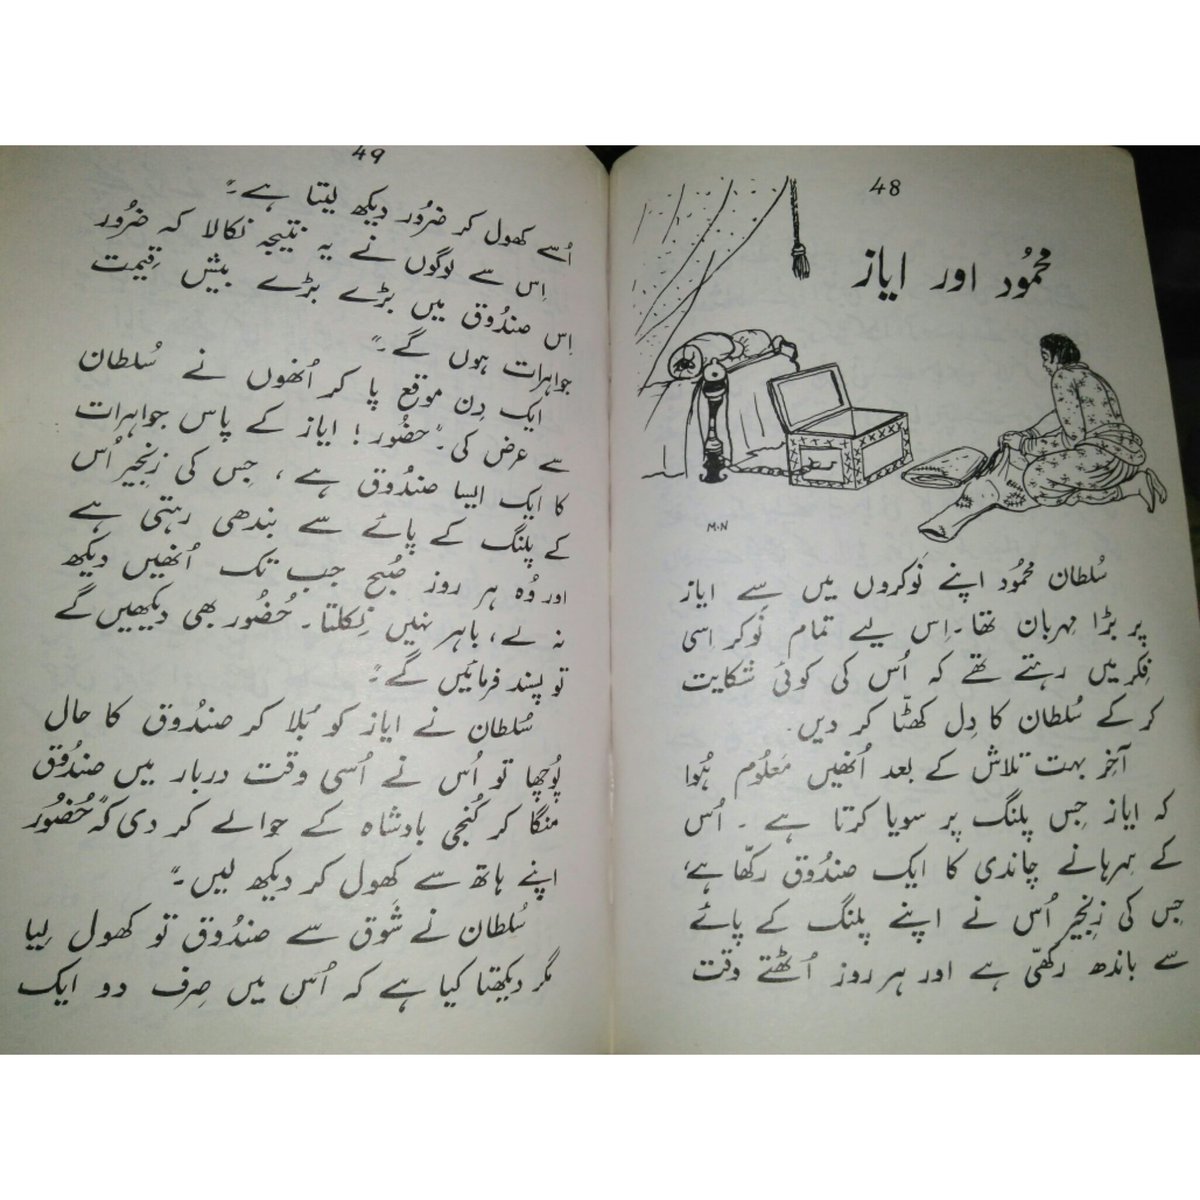 48
محمُود اور ایاز
M.N
سُلطان محمُود اپنے نَوکروں میں سے ایاز
پر بڑا مِہربان تھا۔ اِس لیے تمام نَوکر اسی
فِکر میں رہتے تھے کہ اُس کی کوئی شکایت
کر کے سُلطان کا دِل کھٹّا کر دیں۔
آخِر بہت تلاش کے بعد اُنھیں مَعلُوم ہُوا
کہ ایاز جِس پلنگ پر سویا کرتا ہے ۔ اُس
کے سِرہانے چاندی کا ایک صندُوق رکھّا ہے،
جِس کی زنجِیر اُس نے اپنے پلنگ کے پائے
سے باندھ رکھّی ہے اور ہر روز اُٹھتے وقت
49
اُسے کھول کر ضرُور دیکھ لیتا ہے۔"
اِس سے لوگوں نے یہ نتیجہ نکالا کہ ضرُور
اِس صندُوق میں بڑے بڑے بیش قِیمت
جواہرات ہوں گے۔"
ایک دِن موقع پا کر اُنھوں نے سُلطان
سے عرض کی۔"حضُور! ایاز کے پاس جواہرات
کا ایک ایسا صندُوق ہے، جِس کی زنجِیر اُس
کے پلنگ کے پائے سے بندھی رہتی ہے
اور وُہ ہر روز صُبح جب تک اُنھیں دیکھ
نہ لے، باہر نہیں نِکلتا۔ حُضُور بھی دیکھیں گے
تو پسند فرمائیں گے۔"
سُلطان نے ایاز کو بُلا کر صندوق کا حال
پُوچھا تو اُس نے اُسی وقت دربار میں صندُوق
منگا کر کُنجی بادشاہ کے حوالے کر دی کہ"حُضُور
اپنے ہاتھ سے کھول کر دیکھ لیں۔"
سُلطان نے شَوق سے صندُوق تو کھول لِیا
مگر دیکھتا کیا ہے کہ اُس میں صِرف دو ایک